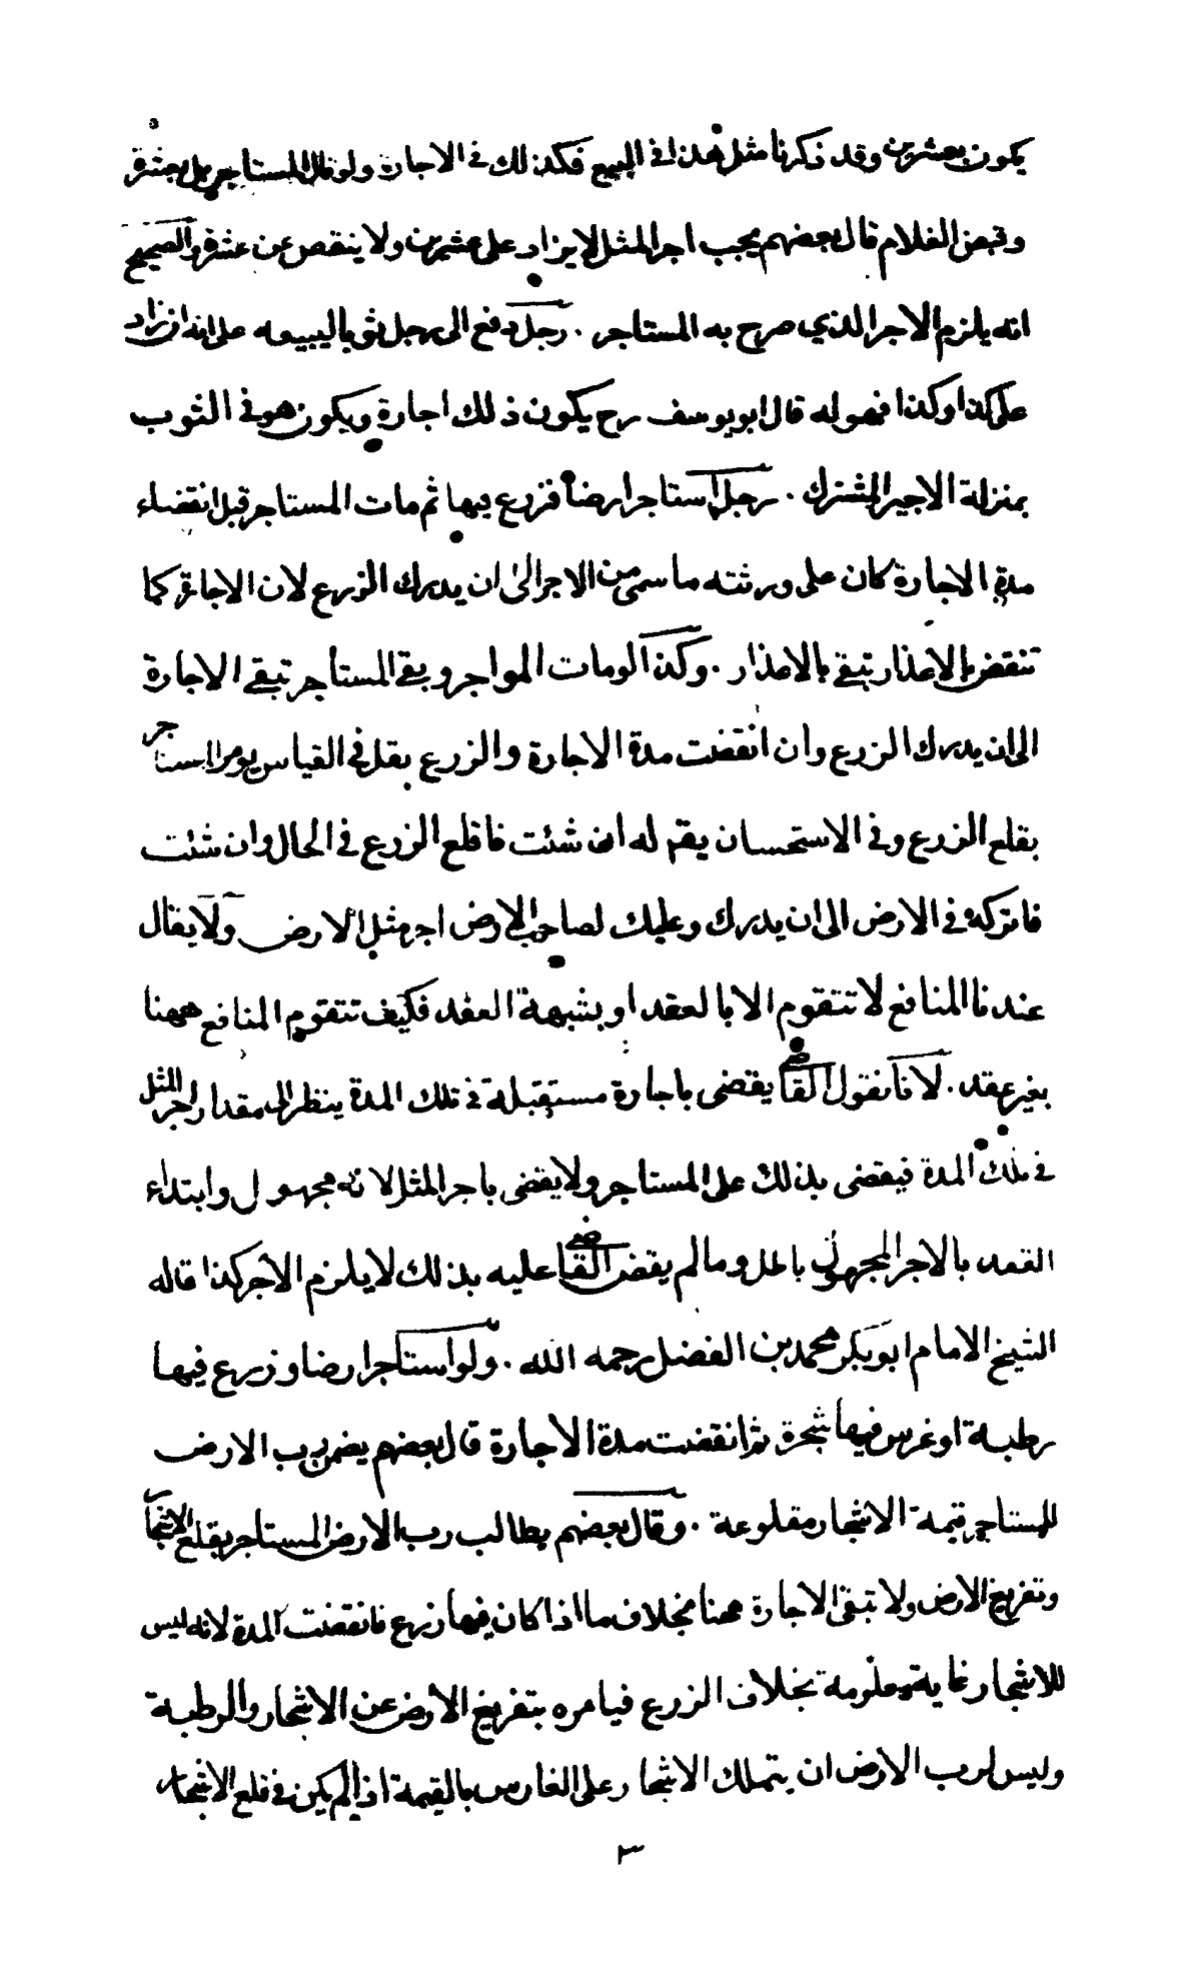 يكون بعشرين وقد ذكرنا مثل هذا في البيع فكذلك في الاجارة ولو قال المستاجر بل بعشرة
وقبض الغلام قال بعضهم يجب اجر المثل لا يزاد على عشرين ولا ينقص عن عشرة والصحيح
انه يلزم الاجر الذي صرح به المستاجر . رجل دفع الى رجل ثوبا ليبيعه على انه ان زاد
على كذا وكذا فهو له قال ابو يوسف رح يكون ذلك اجارة ويكون هو في الثوب
بمنزلة الاجير المشترك . رجل استاجر ارضا فزرع فيها ثم مات المستاجر قبل انقضاء
مدة الاجارة كان على ورثته ما سمى من الاجر الى ان يدرك الزرع لان الاجارة كما
تنقض بالاعذار تبقى بالاعذار . وكذا لو مات المواجر وبقي المستأجر تبقى الاجارة
الى ان يدرك الزرع وان انقضت مدة الاجارة والزرع بقل في القياس يومر المستاجر
بقلع الزرع وفي الاستحسان يقال له ان شئت فاقلع الزرع في الحال وان شئت
فاتركه في الارض الى ان يدرك وعليك لصاحب الارض اجر مثل الارض ولا يقال
عندنا المنافع لا تتقوم الا بالعقد او بشبهة العقد فكيف تتقوم المنافع ههنا
بغير عقد . لانا نقول القاضي يقضى باجارة مستقبلة في تلك المدة ينظر الى مقدار اجر المثل
في تلك المدة فيقضى بذلك على المستاجر ولا يقضى باجر المثل لانه مجهول وابتداء
العقد بالاجر المجهول باطل وما لم يقض القاضي عليه بذلك لا يلزم الاجر كذا قاله
الشيخ الامام ابو بكر محمد بن الفضل رحمه الله . ولو استاجر ارضا وزرع فيها
رطبة او غرس فيها شجرة ثم انقضت مدة الاجارة قال بعضهم يضمن رب الارض
للمستاجر قيمة الاشجار مقلوعة . وقال بعضهم يطالب رب الارض المستاجر بقلع الاشجار
وتفريغ الارض ولا تبقى الاجارة ههنا بخلاف ما اذا كان فيها زرع فانقضت المدة لانه ليس
للاشجار غاية معلومة بخلاف الزرع فيامره بتفريغ الارض عن الاشجار والرطبة
وليس لرب الارض ان يتملك الاشجار على الغارس بالقيمة اذا لم يكن في قلع الاشجار
٣